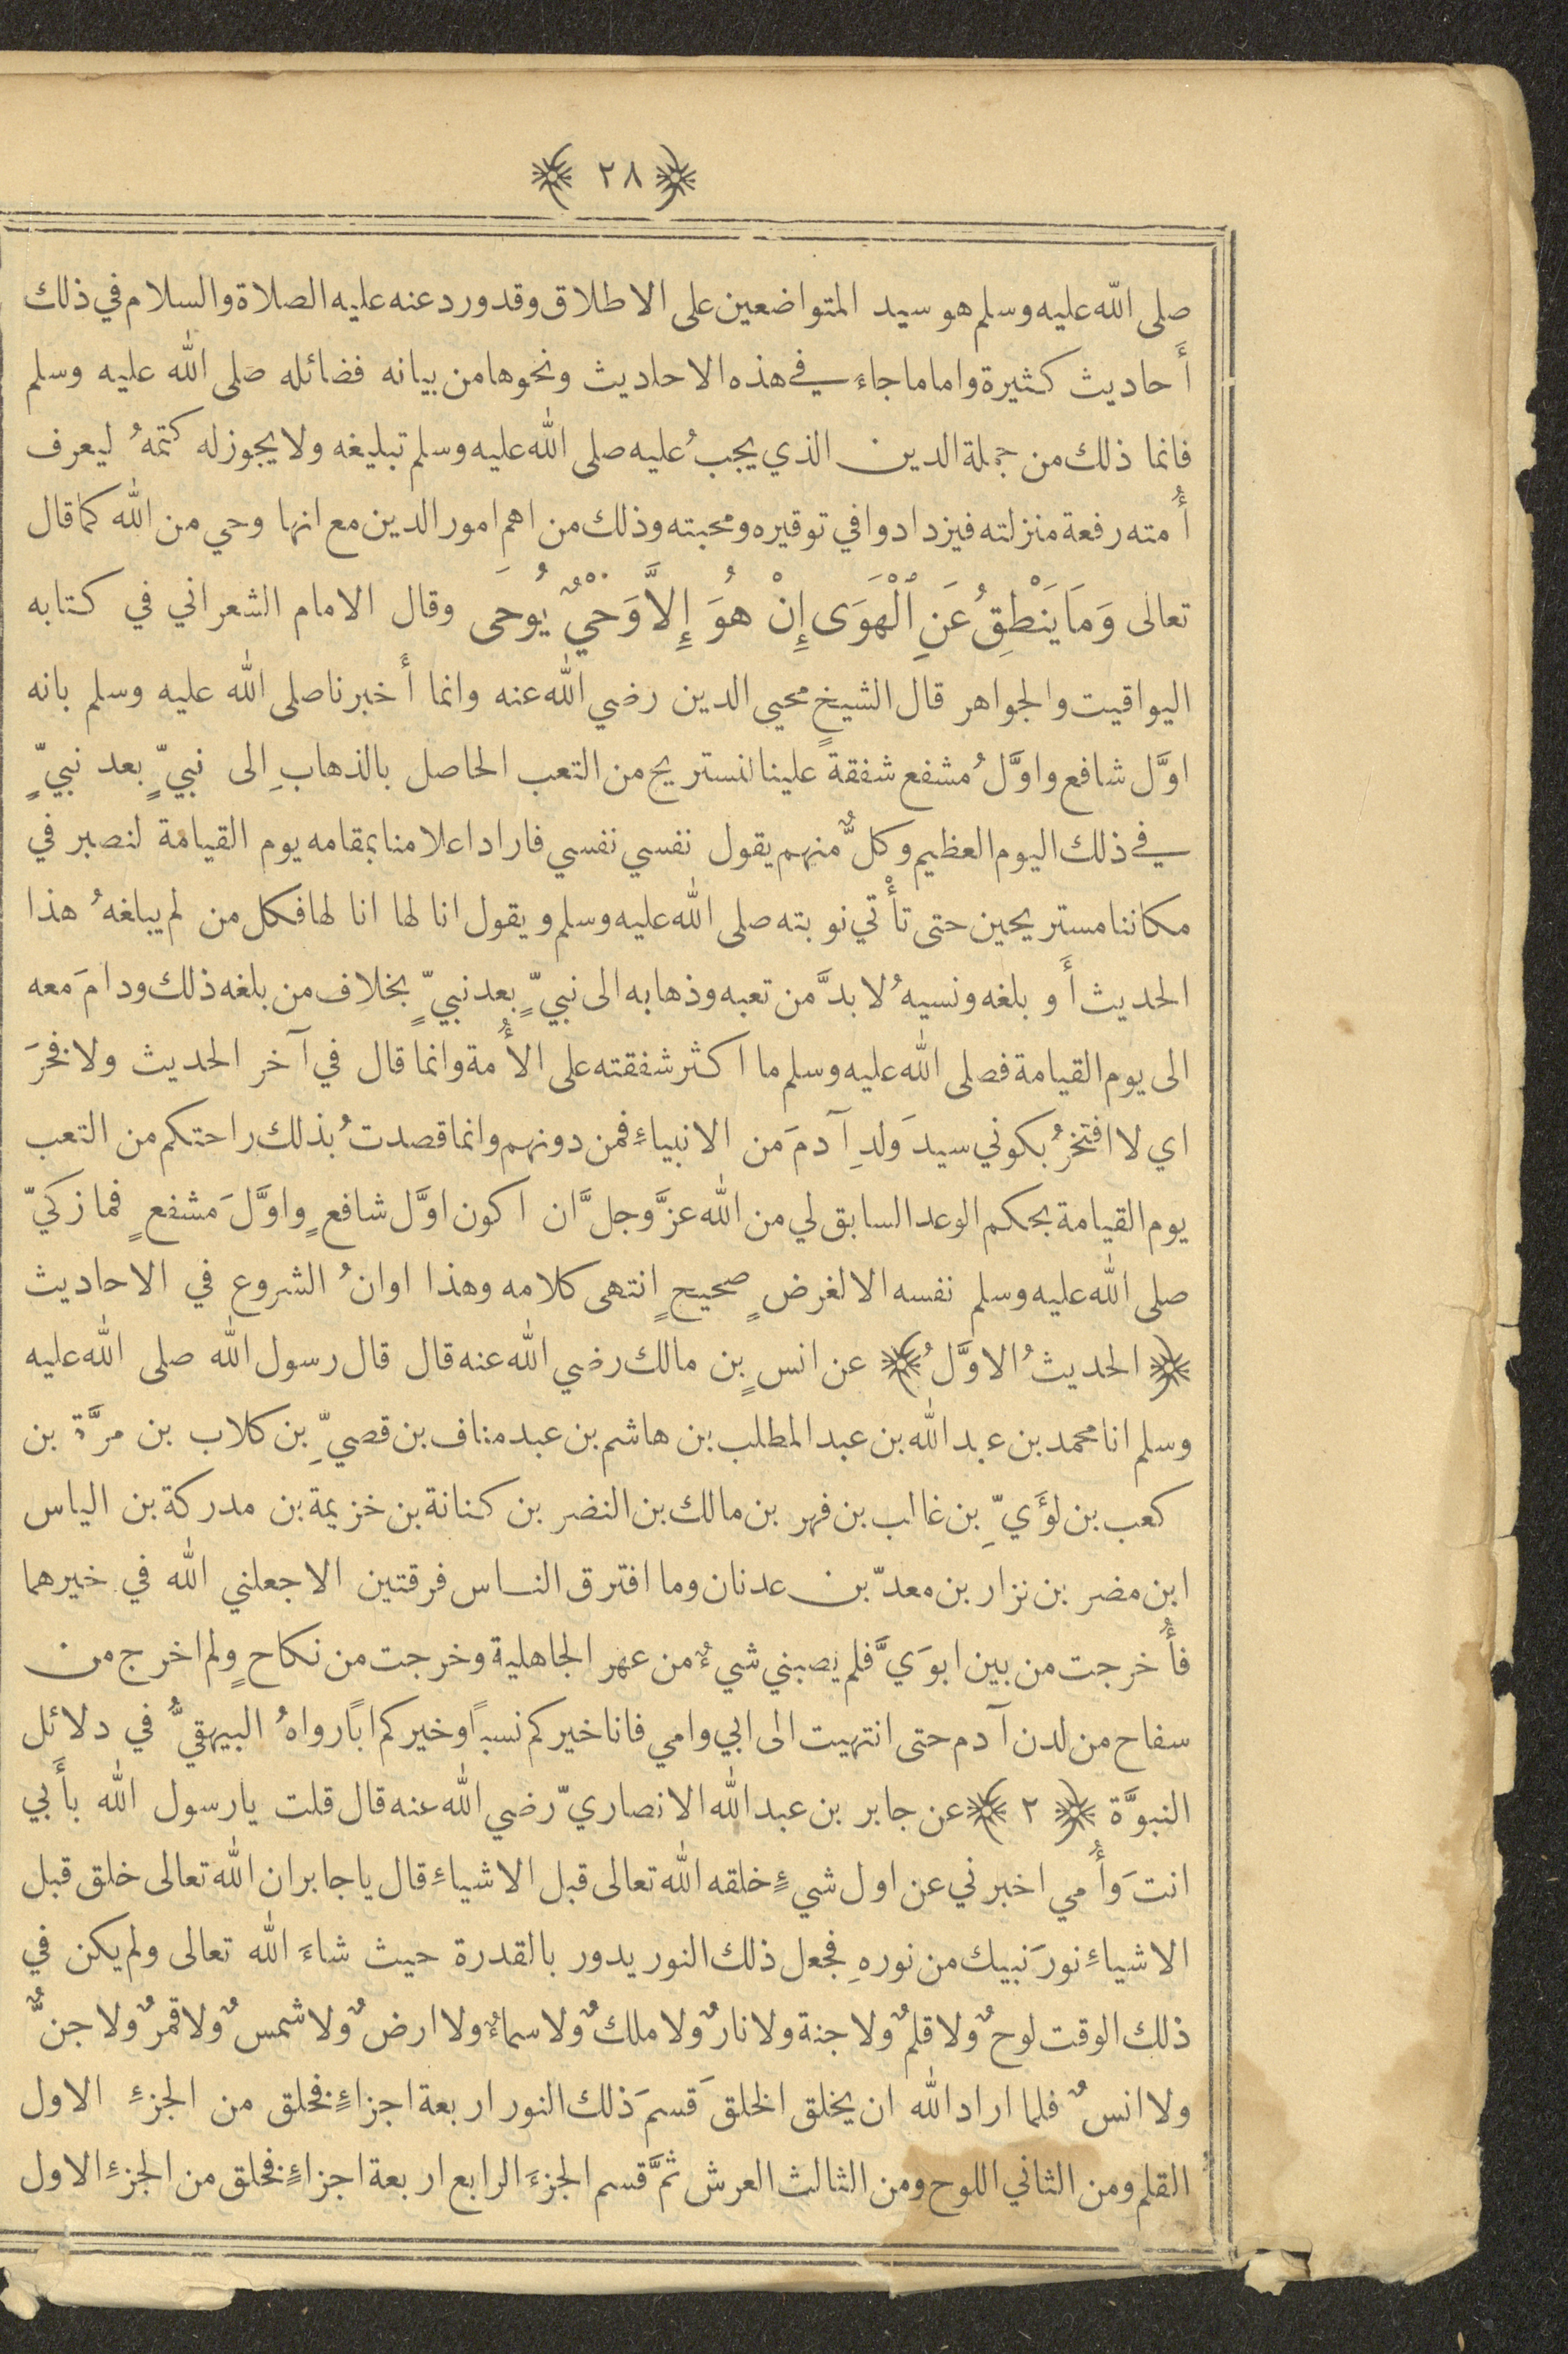 ﴿ ٢٨ ﴾
صلى الله عليه وسلم هو سيد المتواضعين على الاطلاق وقد ورد عنه عليه الصلاة والسلام في ذلك
أَحاديث كثيرة واما ما جاء في هذه الاحاديث ونحوها من بيانه فضائله صلى الله عليه وسلم
فانما ذلك من جملة الدين الذي يجبُ عليه صلى الله عليه وسلم تبليغه ولا يجوز له كتمهُ ليعرف
أُمته رفعة منزلته فيزدادوا في توقيره ومحبته وذلك من اهم امور الدين مع انها وحي من الله كما قال
تعالى وَمَا يَنْطِقُ عَنِ ٱلْهَوَى إِنْ هُوَ إِلاَّ وَحْيٌ يُوحَى وقال الامام الشعراني في كتابه
اليواقيت والجواهر قال الشيخ محيي الدين رضي الله عنه وانما أَخبرنا صلى الله عليه وسلم بانه
اوَّل شافعٍ واوَّلُ مشفع شفقة علينا لنستريح من التعب الحاصل بالذهابِ الى نبيٍّ بعد نبيٍّ
في ذلك اليوم العظيم وكلٌّ منهم يقول نفسي نفسي فاراد اعلامنا بمقامه يوم القيامة لنصبر في
مكاننا مستريحين حتى تأْتي نوبته صلى الله عليه وسلم ويقول انا لها انا لها فكل من لم يبلغهُ هذا
الحديث أَو بلغه ونسيهُ لا بدَّ من تعبه وذهابه الى نبيٍّ بعد نبيٍّ بخلاف من بلغه ذلك ودامَ معه
الى يوم القيامة فصلى الله عليه وسلم ما اكثر شفقته على الأُمة وانما قال في آخر الحديث ولا فخرَ
اي لا افتخرُ بكوني سيدَ ولدِ آدمَ من الانبياءِ فمن دونهم وانما قصدتُ بذلك راحتكم من التعب
يوم القيامة بحكم الوعد السابق لي من الله عزَّ وجلَّ ان اكون اوَّل شافعٍ واوَّلَ مشفعٍ فما زكيّ
صلى الله عليه وسلم نفسه الا لغرضٍ صحيحٍ انتهى كلامه وهذا اوانُ الشروع في الاحاديث
﴿ الحديثُ الاوَّلُ ﴾ عن انسِ بن مالك رضي الله عنه قال قال رسول الله صلى الله عليه
وسلم انا محمد بن عبد الله بن عبد المطلب بن هاشم بن عبد مناف بن قصيِّ بن كلاب بن مرَّة بن
كعب بن لؤَيِّ بن غالب بن فهر بن مالك بن النضر بن كنانة بن خزيمة بن مدركة بن الياس
ابن مضر بن نزار بن معدّ بن عدنان وما افترق الناس فرقتين الا جعلني الله في خيرهما
فأُخرجت من بين ابوَيَّ فلم يصبني شيءٌ من عهر الجاهلية وخرجت من نكاحٍ ولم اخرج من
سفاح من لدن آدم حتى انتهيت الى ابي وامي فانا خيركم نسباً وخيركم اباً رواهُ البيهقيُّ في دلائل
النبوَّة ﴿ ٢ ﴾ عن جابر بن عبد الله الانصاريّ رضي الله عنه قال قلت يا رسول الله بأَبي
انتَ وأُمي اخبرني عن اول شيءٍ خلقه الله تعالى قبل الاشياءِ قال يا جابر ان الله تعالى خلق قبل
الاشياءِ نورَ نبيك من نورهِ فجعل ذلك النور يدور بالقدرة حيث شاءَ الله تعالى ولم يكن في
ذلك الوقت لوحٌ ولا قلمٌ ولا جنة ولا نارٌ ولا ملكٌ ولا سماءٌ ولا ارضٌ ولا شمسٌ ولا قمرٌ ولا جنٌّ
ولا انسٌ فلما اراد الله ان يخلق الخلقَ قسمَ ذلك النور اربعة اجزاءٍ فخلق من الجزءِ الاول
القلم ومن الثاني اللوح ومن الثالث العرش ثمَّ قسم الجزءَ الرابع اربعة اجزاءٍ فخلق من الجزءِ الاول